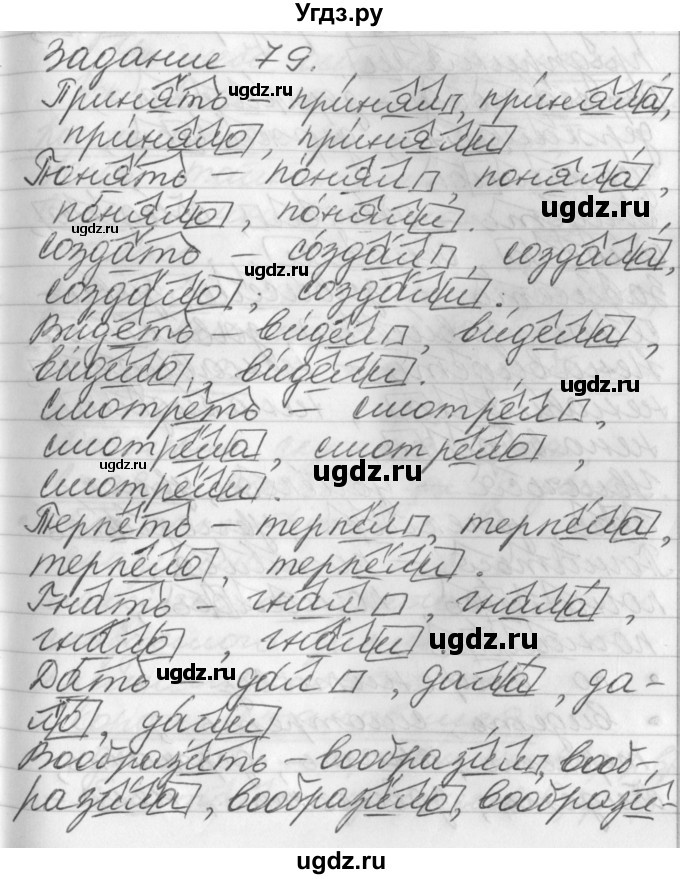 Угдз.ру
Задание 79.
Принять – принял, приняла,
приняло, приняли
Понять – понял, поняла,
поняло, поняли.
создать – создал, создала,
создало, создали.
Видеть – видел, видела,
видело, видели.
Смотреть – смотрел,
смотрела, смотрело,
смотрели.
Терпеть – терпел, терпела,
терпело, терпели.
Гнать – гнал, гнала,
гнало, гнали.
Дать – дал, дала, да-
ло, дали
Вообразить – вообразил, вооб-
разила, вообразило, вообрази-
ugdz.ru
ugdz.ru
ugdz.ru
ugdz.ru
ugdz.ru
ugdz.ru
ugdz.ru
ugdz.ru
ugdz.ru
ugdz.ru
ugdz.ru